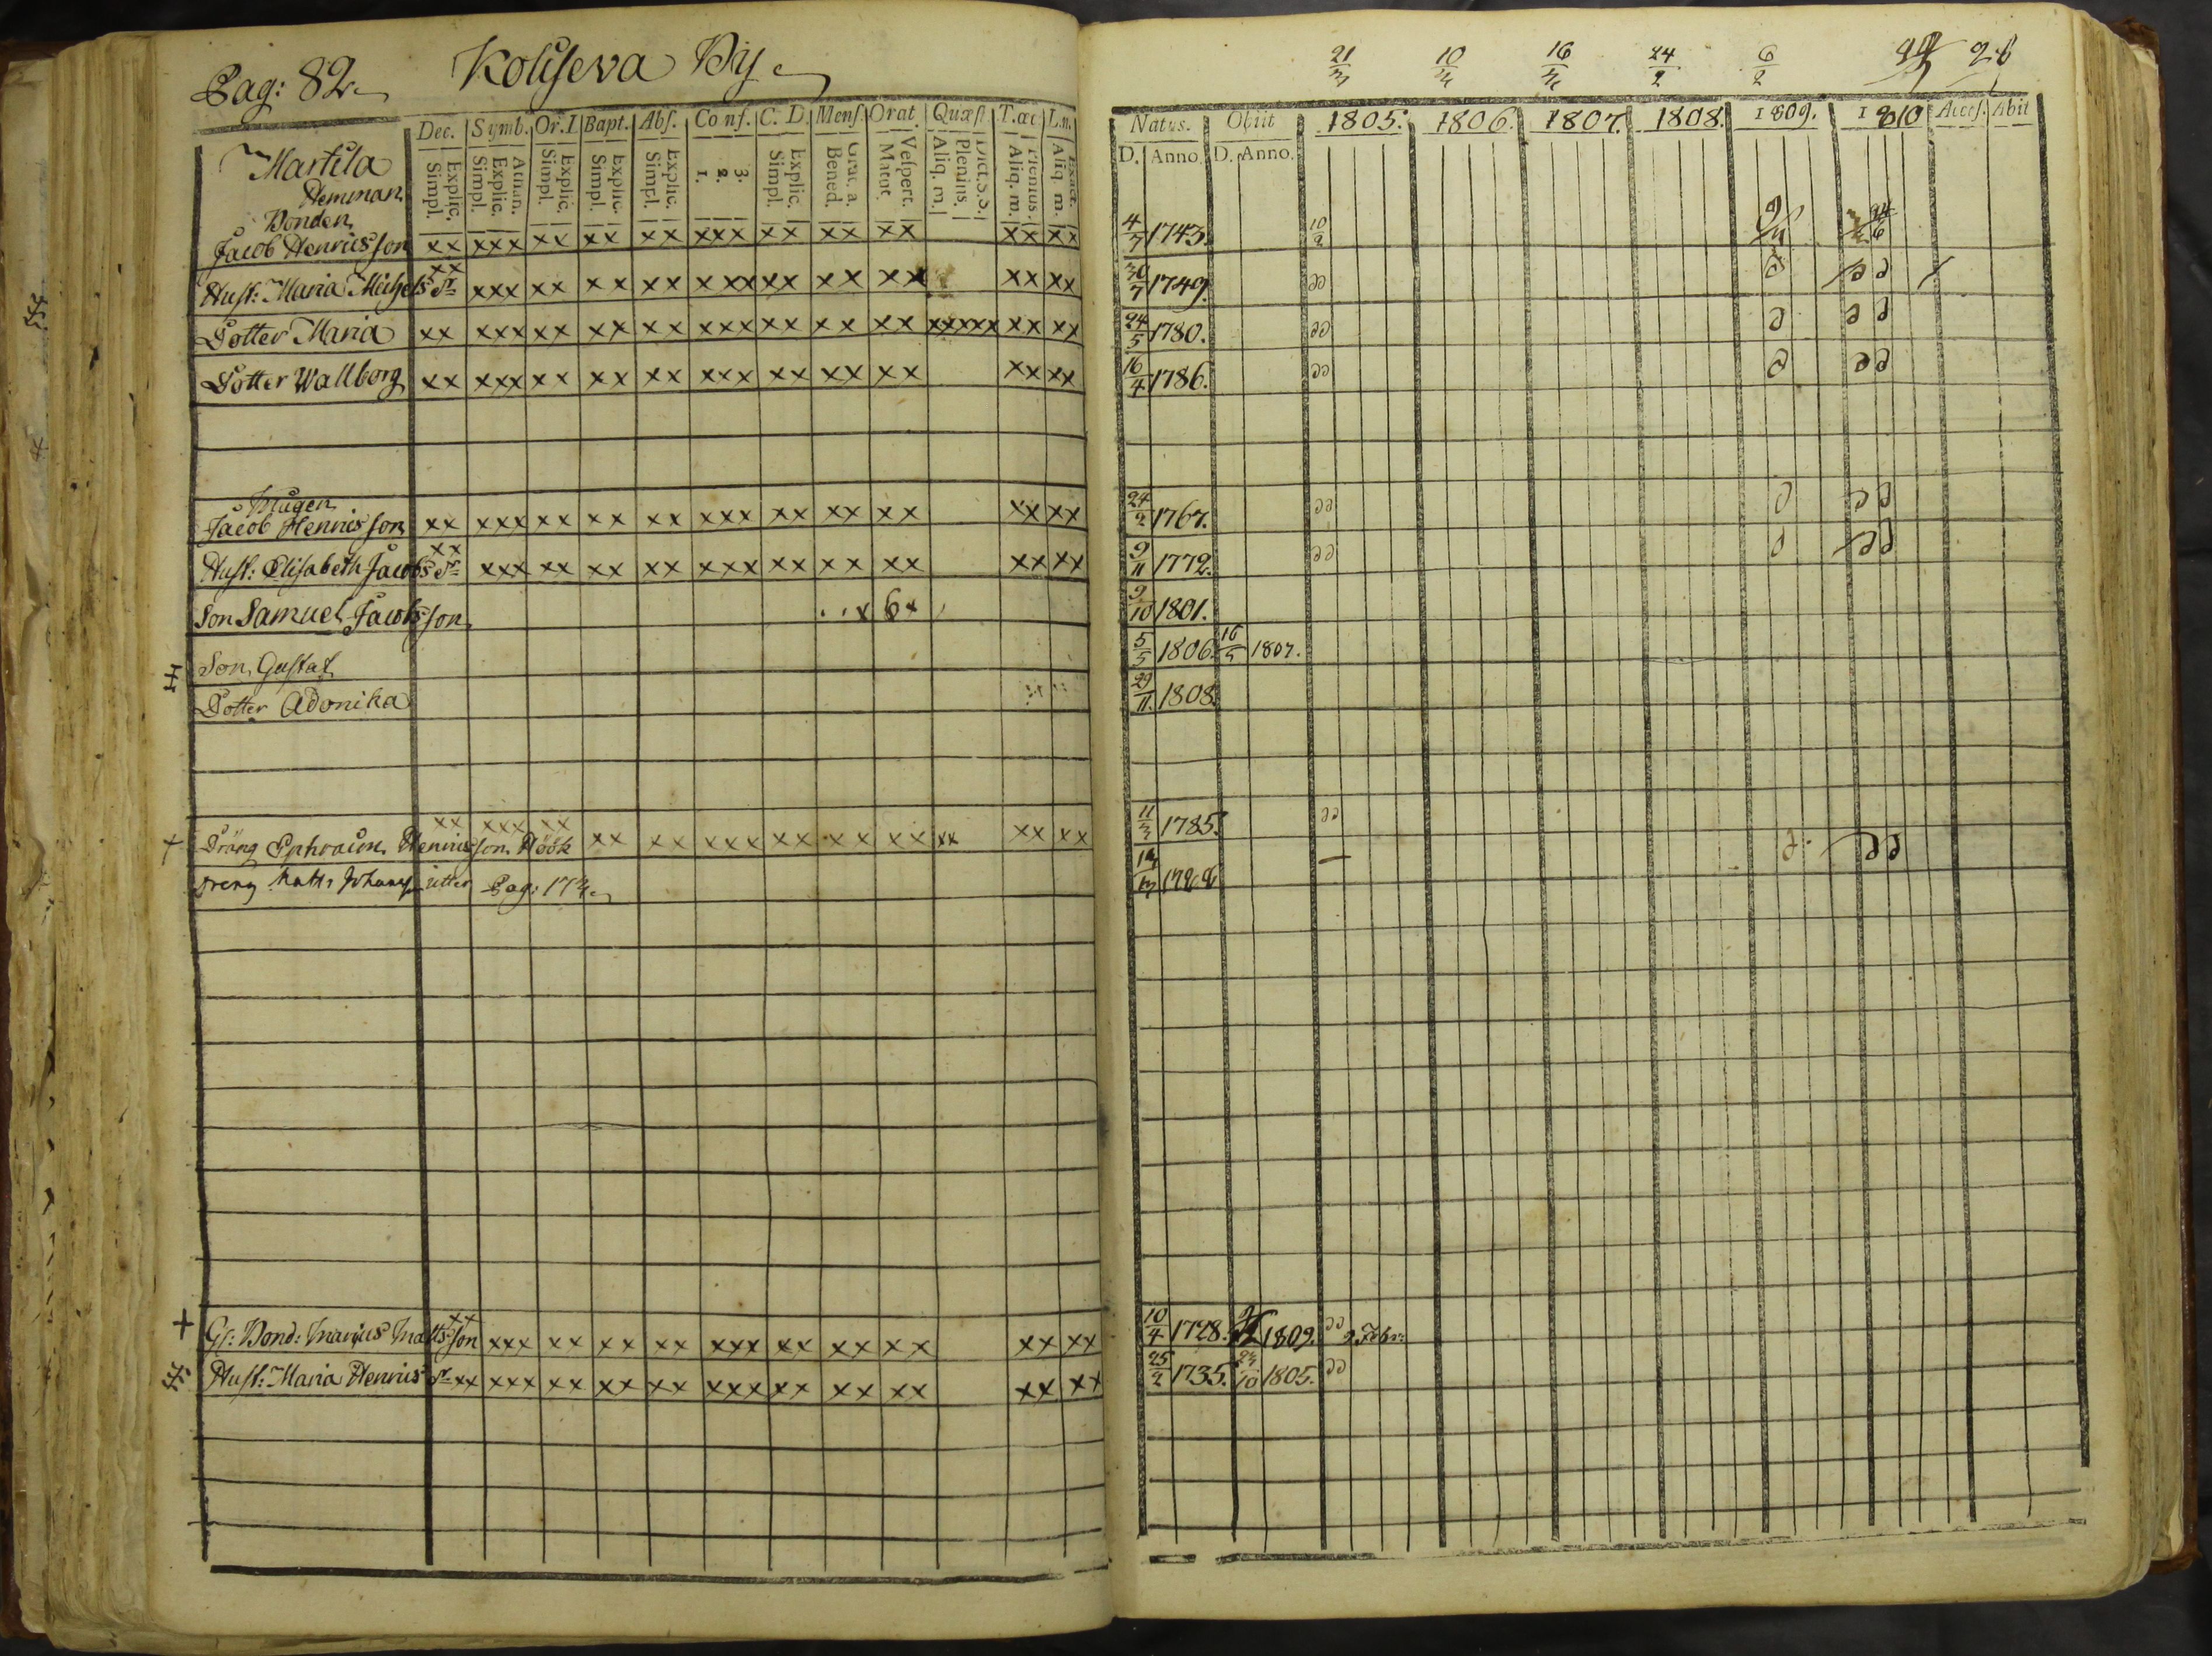 Pag: 82 Kouseva By
21/3 10/3 16/3 24/2 6/2
Dec. Symb. Or. I Bapt. Abſ. Conf. C. D. Menſ. Orat. Quæſt. T. œc L. n.
Explic. Simpl. Athan. Explic. Simpl. Explic. Simpl. Explic. Simpl. Explic. Simpl. 3. 2. 1. Explic. Simpl. Grat. a. Bened. Veſpert. Matut. Dict. S. S. Plenius. Aliq. m. Plenius. Aliq. m. Exacte. Aliq. m.
Natus. Obiit 1805. 1806. 1807. 1808. 1809. 1810 Acceſ. Abit
D. Anno. D. Anno.
Martila
Hemman
Bonden
Jacob Henricsson xx xxx xx xx xx xxx xx xx xx xx xx 4/7 1743. 10/2
Hust: Maria Michels Dr xx xxx xx xx xx xxx xx xx xx xx xx 30/7 1749.
Dotter Maria xx xxx xx xx xx xxx xx xx xx xxxxx xx xx 24/5 1780.
Dotter Wallborg xx xxx xx xx xx xxx xx xx xx xx xx 16/4 1786.
Mågen
Jacob Henricsson xx xxx xx xx xx xxx xx xx xx xx xx 24/2 1767.
Hust: Elisabeth Jacobs Dr xx xxx xx xx xx xxx xx xx xx xx xx 9/11 1772.
Son Samuel Jacobsson 9/10 1801.
Son Gustaf 5/5 1806. 16/5 1807.
Dotter Adonika 29/11 1808.
+ Dräng Ephraim Henricsson Höök xx xxx xx xx xx xxx xx xx xx xx xx xx 11/3 1785.
Dreng Matts Johansson Pag: 173
+ Gl: Bond: Matts son xx xxx xx xx xx xxx xx xx xx xx xx 10/4 1728. 1809. 2 Febr:
Hust: Maria Henrics Dr xx xxx xx xx xx xxx xx xx xx xx xx 25/2 1735. 23/10 1805.